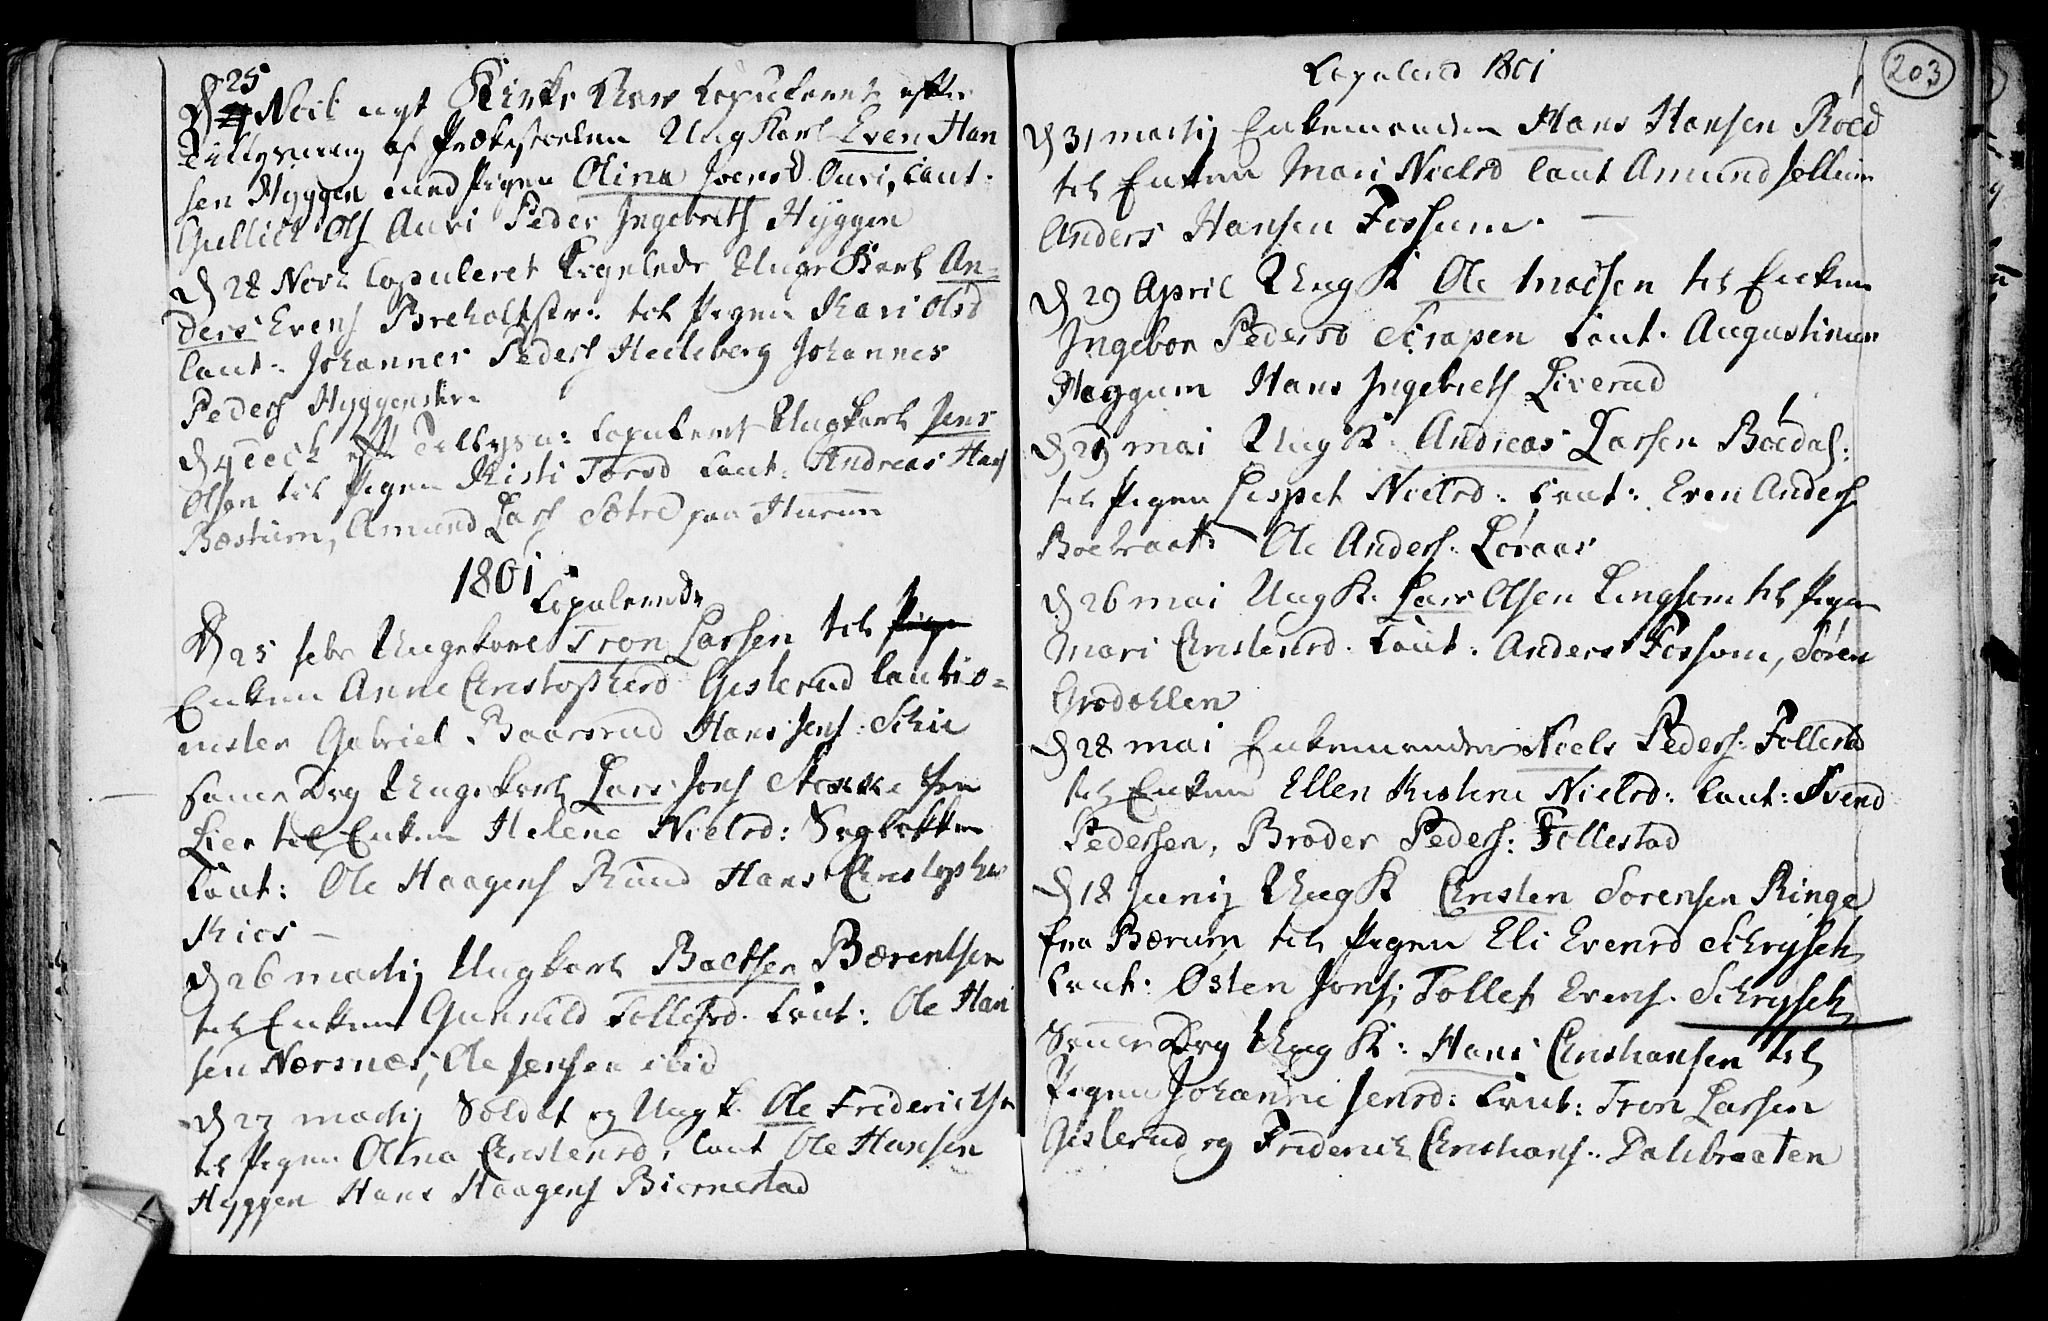 25
D Novb udi Kirke blev Copuleret efter
Tillysning af Prækestoelen Ung Karl Even Han
sen Hyggen med Pigen Olina Iversd. Ouri, Caut.
Gullich Ols Auri Peder Ingebrets Hyggen
D 28 Novb Copuleret ligeleds Unge Karl An-
ders Evens Breholtstr. til Pigen Kari Olsd
Caut. Johannes Peders Hedeberg Johannes
Peders Hyggenstr.
D 4 Decb eft Tillysn: Copuleret Ungkarl Jens
Olsen til Pigen Kisti Torsd Caut. Andreas Hans
Bøstum, Amund Lars Sætre paa Hurum
1801
Copulerede
D 25 febr Ungekarl Tron Larsen til Pige
Enken Anne Christophersd Gislerud Cautio=
nister Gabriel Baarsrud Hans Jens: Schie
samme Dag Ungekarl Lars Jons Stokke fra
Lier til Enken Helene Nielsd: Sagløkken
Caut: Ole Haagens Ruud Hans Christopher
Kios
D 26 martij Ungkarl Baltser Bærentsen
til Enken Gunnild Tollefsd. Caut: Ole Han
sen Nærsnæs, Ole Jensen ibid
D 27 martij Soldat og Ung K. Ole Friderichsn
til Pigen Olina Christensd, Caut Ole Hansen
Hyggen Hans Haagens Biørnestad
Copulered 1801
203
D 31 martij Enkemanden Hans Hansen Røed
til Enken Mari Nielsd Caut Amund Jellum
Anders Hansen Fossum.
D 29 April Ung K Ole Madsen til Enken
Ingebor Pedersd Scrapen Caut. Augustinus
Haggum Hans Ingebrets Liverud
D 29 mai Ung K. Andreas Larsen Bøedal:
til Pigen Lispet Nielsd: Caut: Even Anders
Boebraat: Ole Anders. Løraas
D 26 mai Ung K. Lars Olsen Lingsom til Pigen
Mari Christensd. Caut: Anders Fossum, Søren
Grødahlen
D 28 mai Enkemanden Niels Peders: Follestad
til Enken Ellen Kistene Nielsd: Caut: Svend
Pedersen, Brøder Peders: Follestad
D 18 Junij Ung K Christen Sorensen Ringe
fra Bærum til Pigen Eli Evensd Schrysseh
Caut: Østen Jons; Tollef Evens. Schrysseh
Samme Dag Ung K: Hans Christiansen til
Pigen Johanne Jensd: Caut: Tron Larsen
Gislerud og Friderich Christians: Dalebraaten